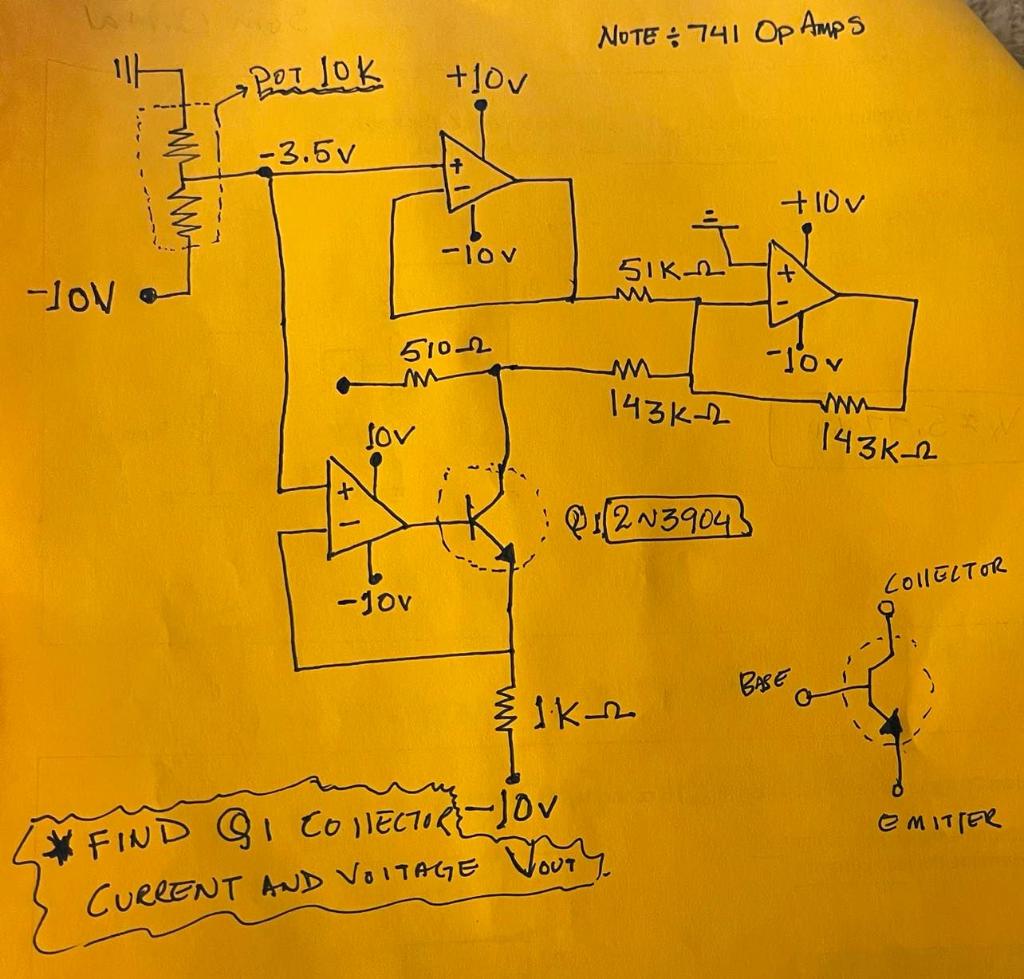 NOTE ÷ 741 Op Amps
POT 10K
+10v
-3.5v
-10v
-10V
+10v
51K-Ω
-10v
510-Ω
143K-Ω
143K-Ω
10v
Q1 2N3904
-10v
COllECTOR
BASE
1K-Ω
-10v
EMITTER
* FIND Q1 COllECTOR
CURRENT AND VOlTAGE VOUT.